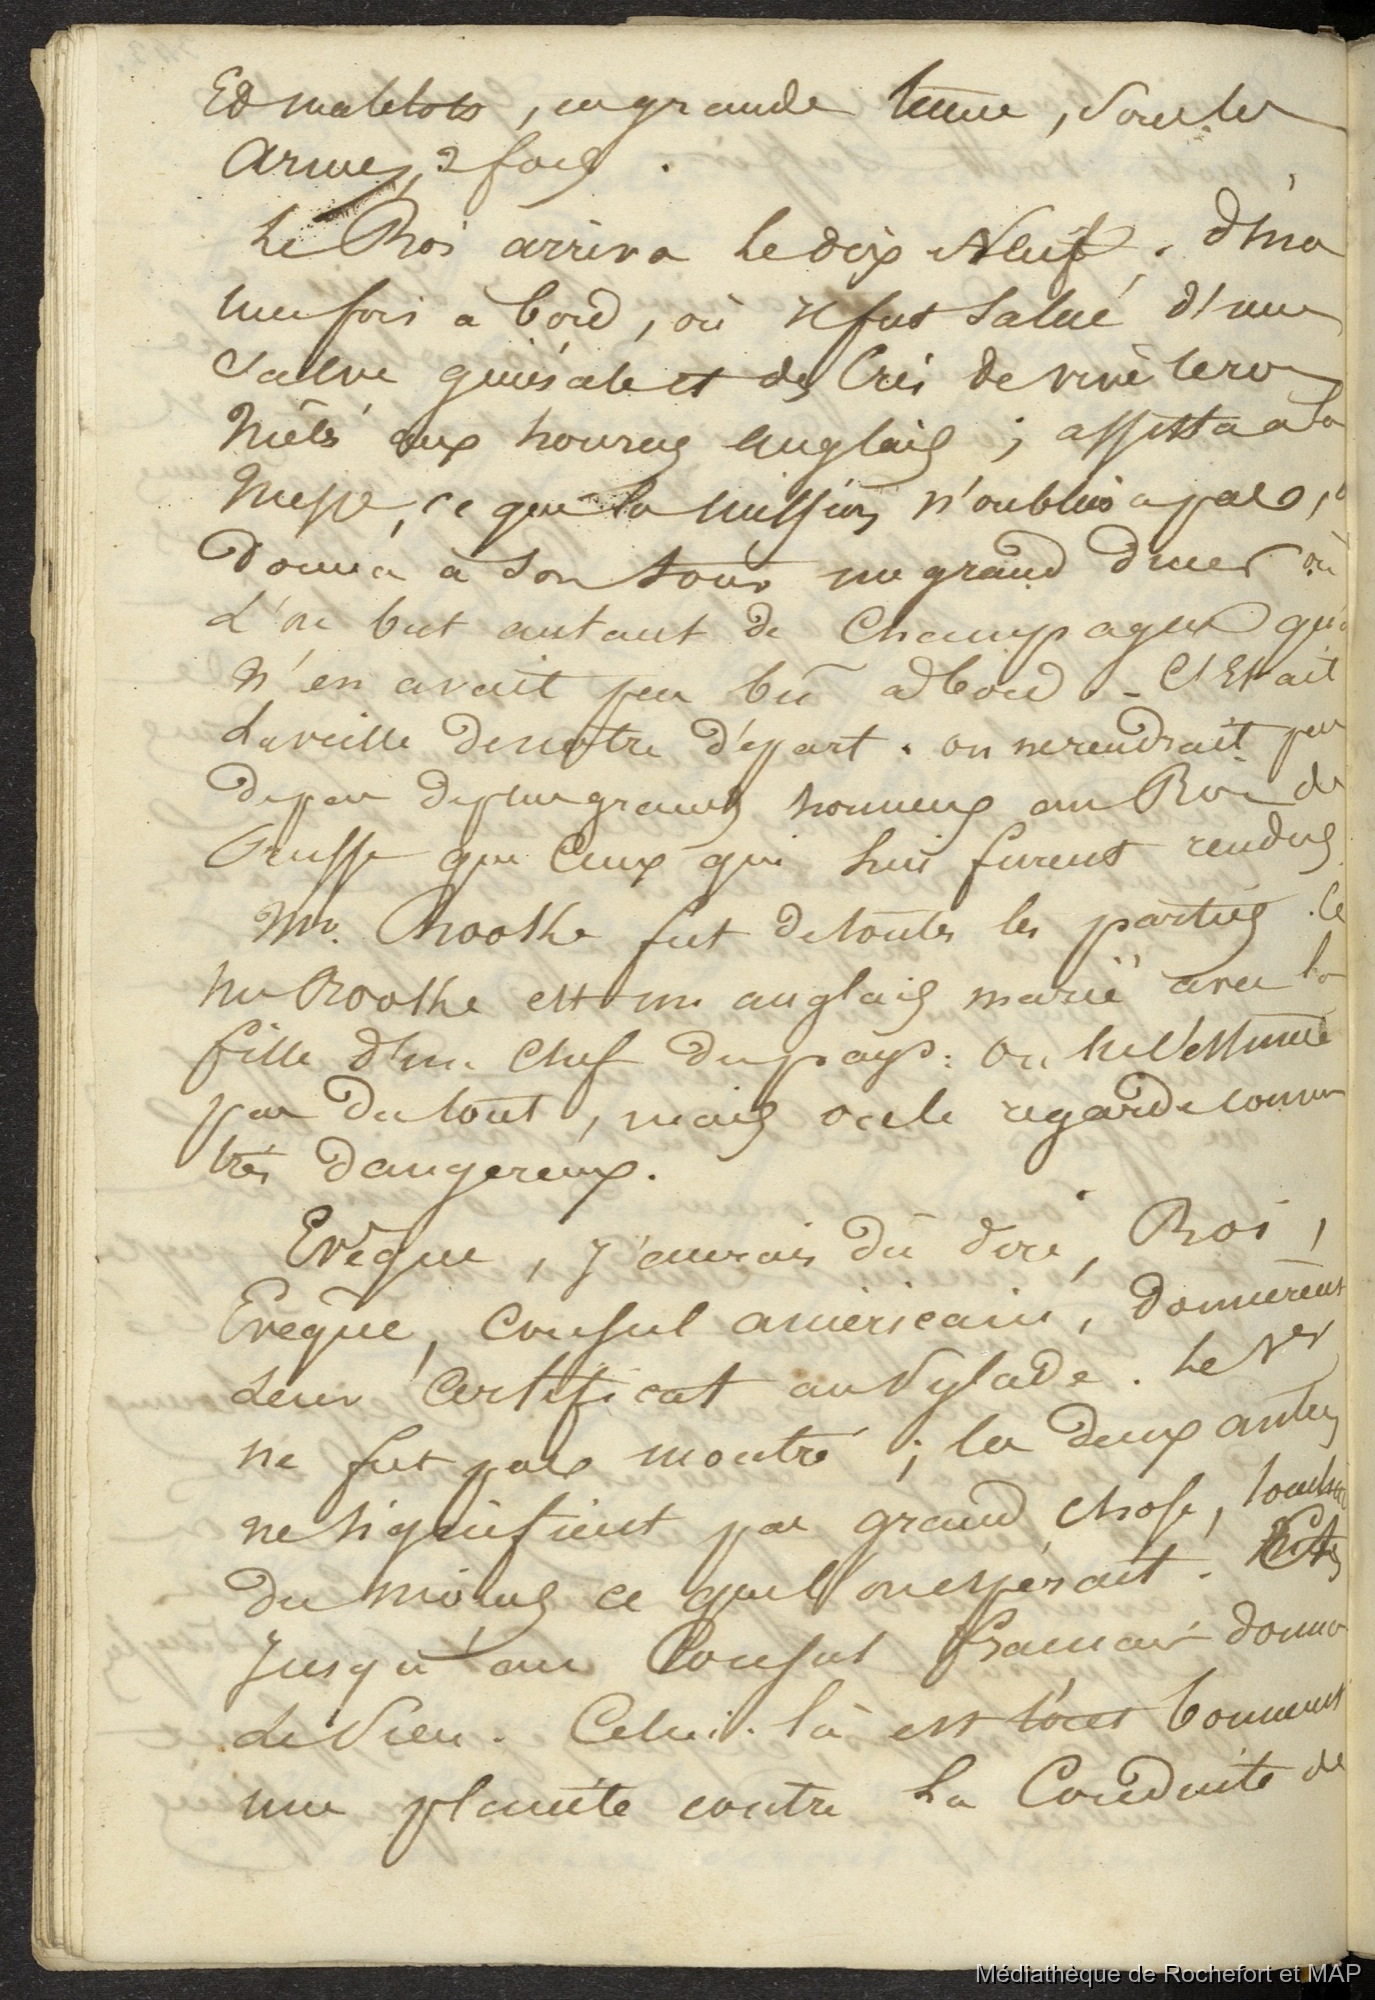 Et matelots, en grande tenue, sous les
armes, 2 fois.
Le Roi arriva le dix Neuf. dina
une fois à bord, où il fut salué d'une
salve génerale et des Cris de vive le roi
mêlés aux houras anglais ; assista a la
messe, ce que la mission n'oublia pas,
donna à son tour un grand diner où
l'on but autant de Champagne qu'
n'en avait peu bû abord - C'Etait
La veille de notre départ. on ne rendrait pas
de plus grands honneurs au Roi de
Prusse que Ceux qui lui furent rendus
Mr. Brooke fut de toutes les parties. Ce
Mr Brooke est un anglais marié avec la
fille d'un Chef du pays : On ne l'estime
pas du tout, mais on le regarde comme
très dangereux.
Evêque, j'aurais dû dire, Roi,
Evêque, Consul américain, donnèrent
Leur Certificat au Pylade. Le 1er
ne fut pas montré ; les deux autres
ne signifient pas grand chose,
du moins ce que l'on espérait.
Jusqu'au Consul français donna
le sien. Celui-là est tout bonnement
une plainte contre La Conduite de